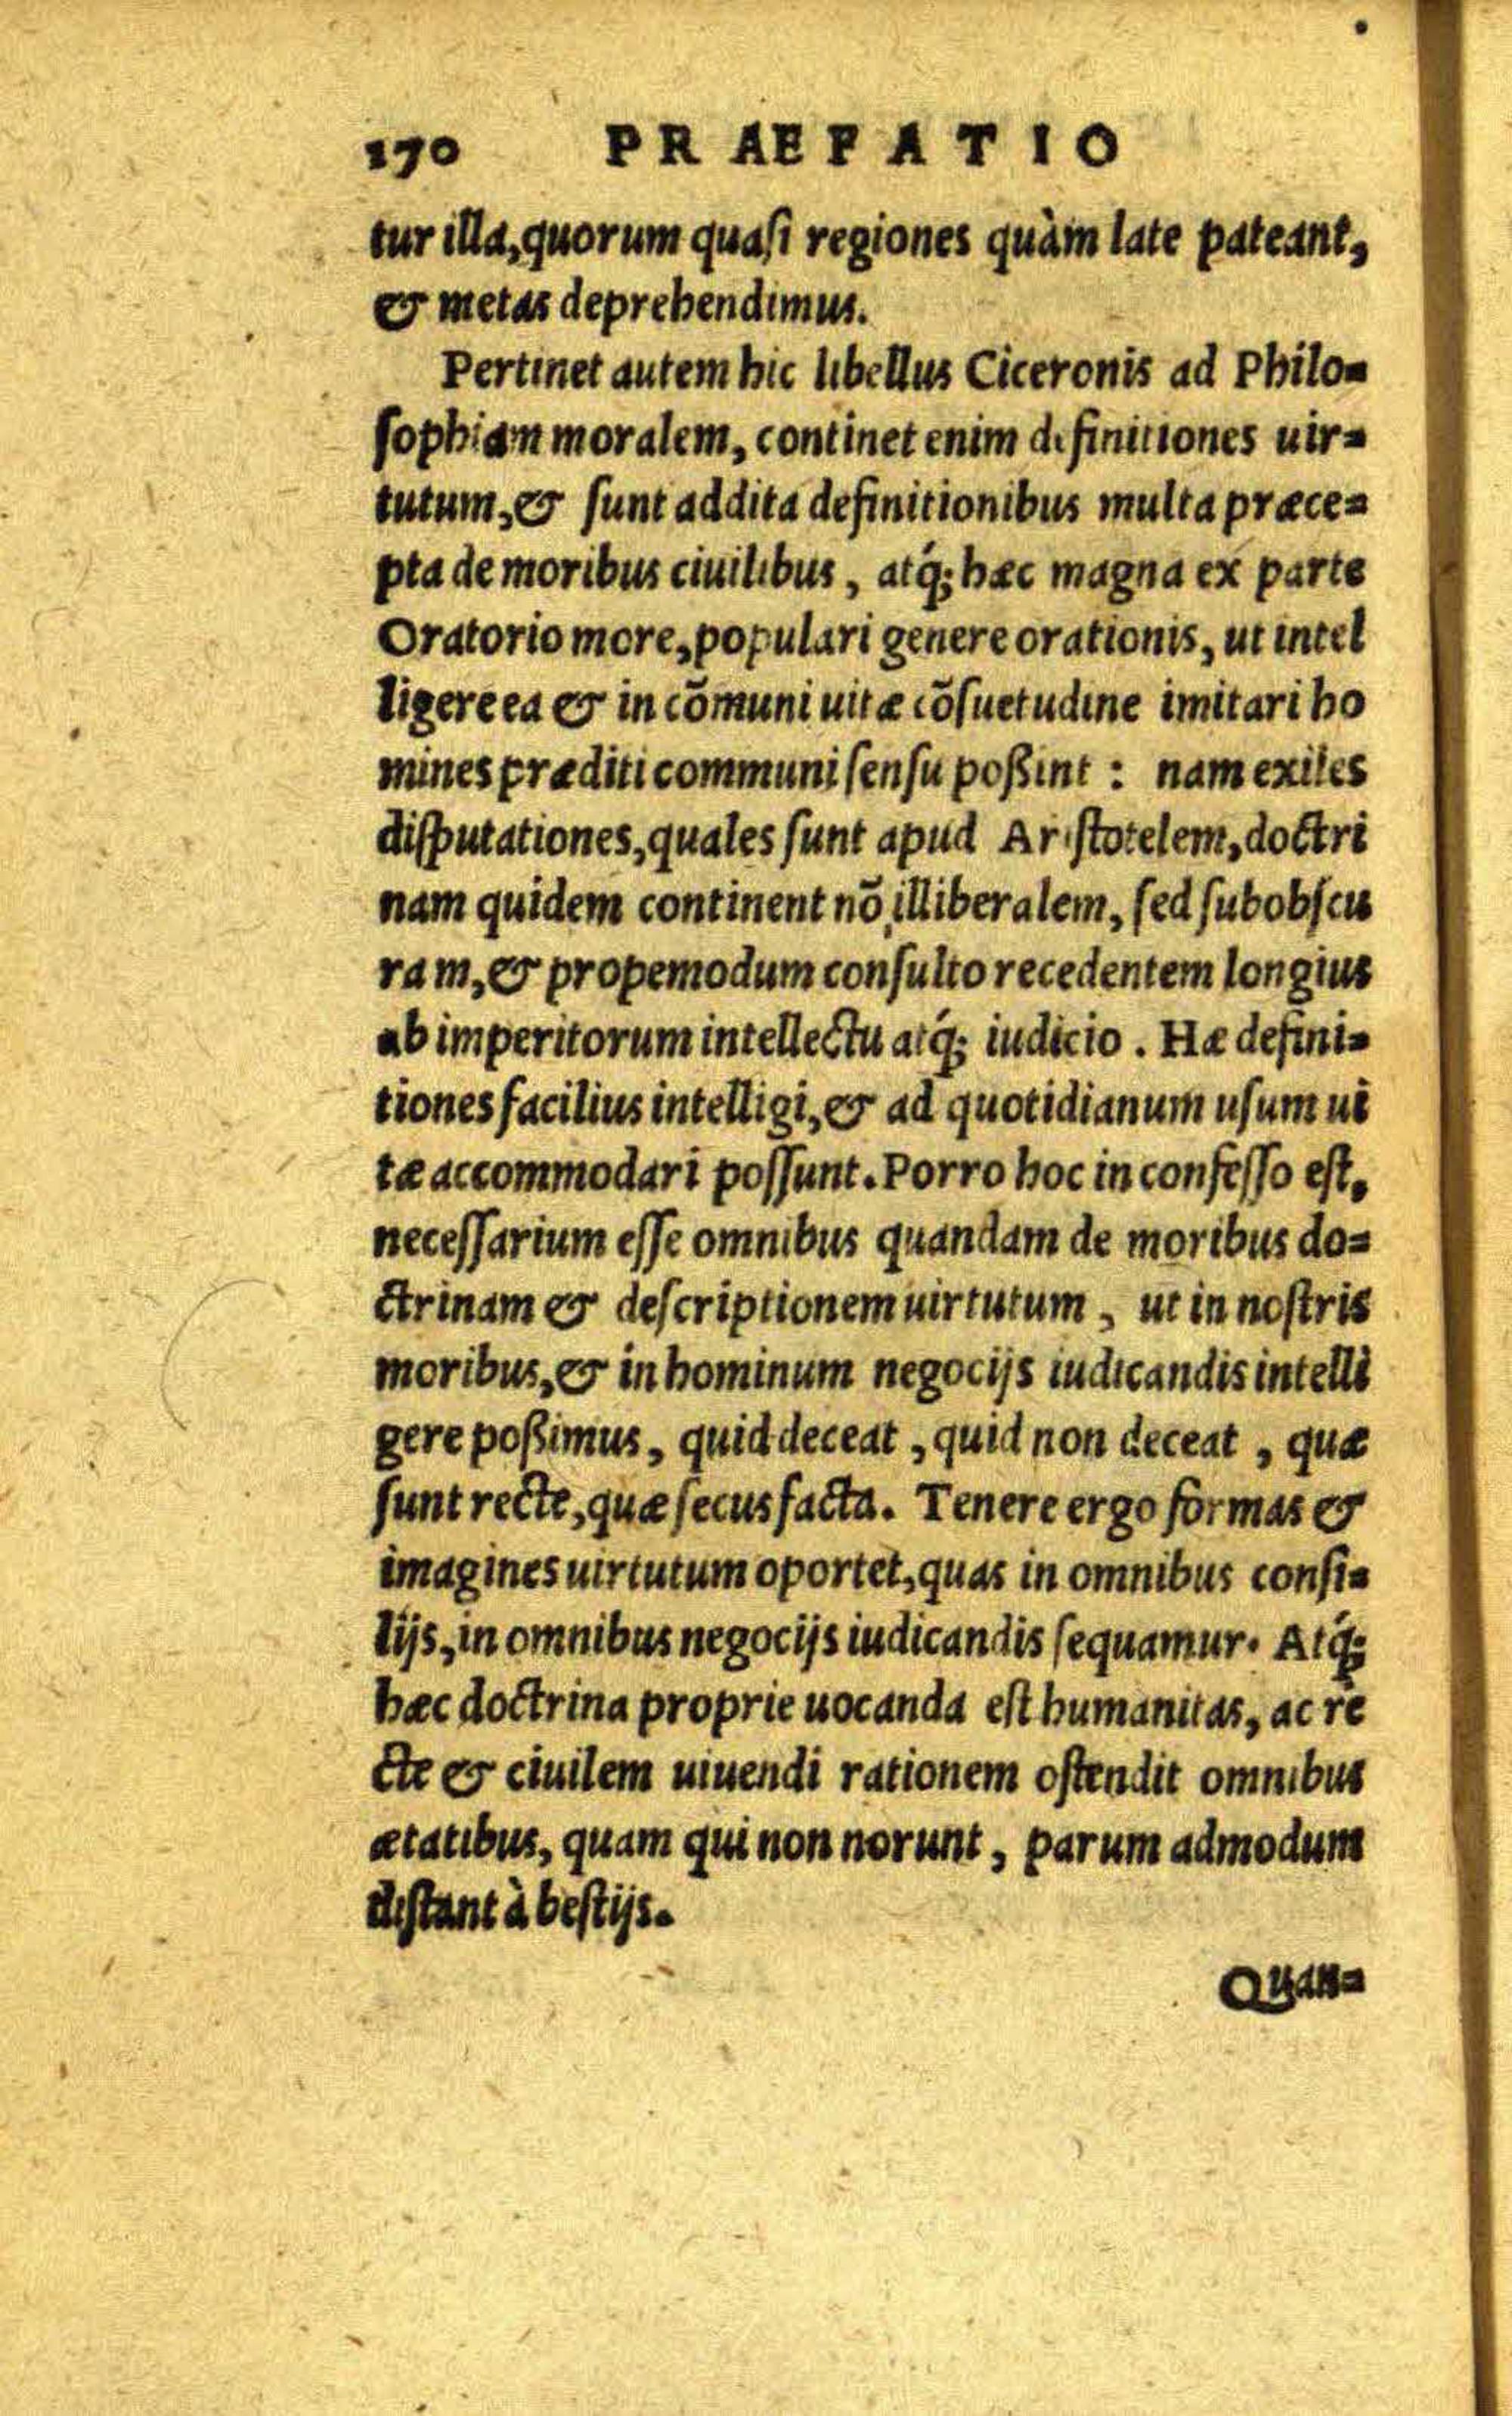 170 PRAEFATIO
tur illa, quorum quaſi regiones quàm late pateant,
& metas deprehendimus.
Pertinet autem hic libellus Ciceronis ad Philo-
ſophiam moralem, continet enim definitiones uir-
tutum, & ſunt addita definitionibus multa præce-
pta de moribus ciuilibus, atq́; hæc magna ex parte
Oratorio more, populari genere orationis, ut intel
ligere ea & in cõmuni uitæ cõſuetudine imitari ho
mines præditi communi ſenſu poßint: nam exiles
diſputationes, quales ſunt apud Ariſtotelem, doctri
nam quidem continent nõ illiberalem, ſed ſubobſcu
ram, & propemodum conſulto recedentem longius
ab imperitorum intellectu atq́; iudicio. Hæ defini-
tiones facilius intelligi, & ad quotidianum uſum ui
tæ accommodari poſſunt. Porro hoc in confeſſo eſt,
neceſſarium eſſe omnibus quandam de moribus do-
ctrinam & deſcriptionem uirtutum, ut in noſtris
moribus, & in hominum negocijs iudicandis intelli
gere poßimus, quid deceat, quid non deceat, quæ
ſunt recte, quæ ſecus facta. Tenere ergo formas &
imagines uirtutum oportet, quas in omnibus conſi-
lijs, in omnibus negocijs iudicandis ſequamur. Atq́;
hæc doctrina proprie uocanda eſt humanitas, ac re
cte & ciuilem uiuendi rationem oſtendit omnibus
ætatibus, quam qui non norunt, parum admodum
diſtant à beſtijs.
Quan-